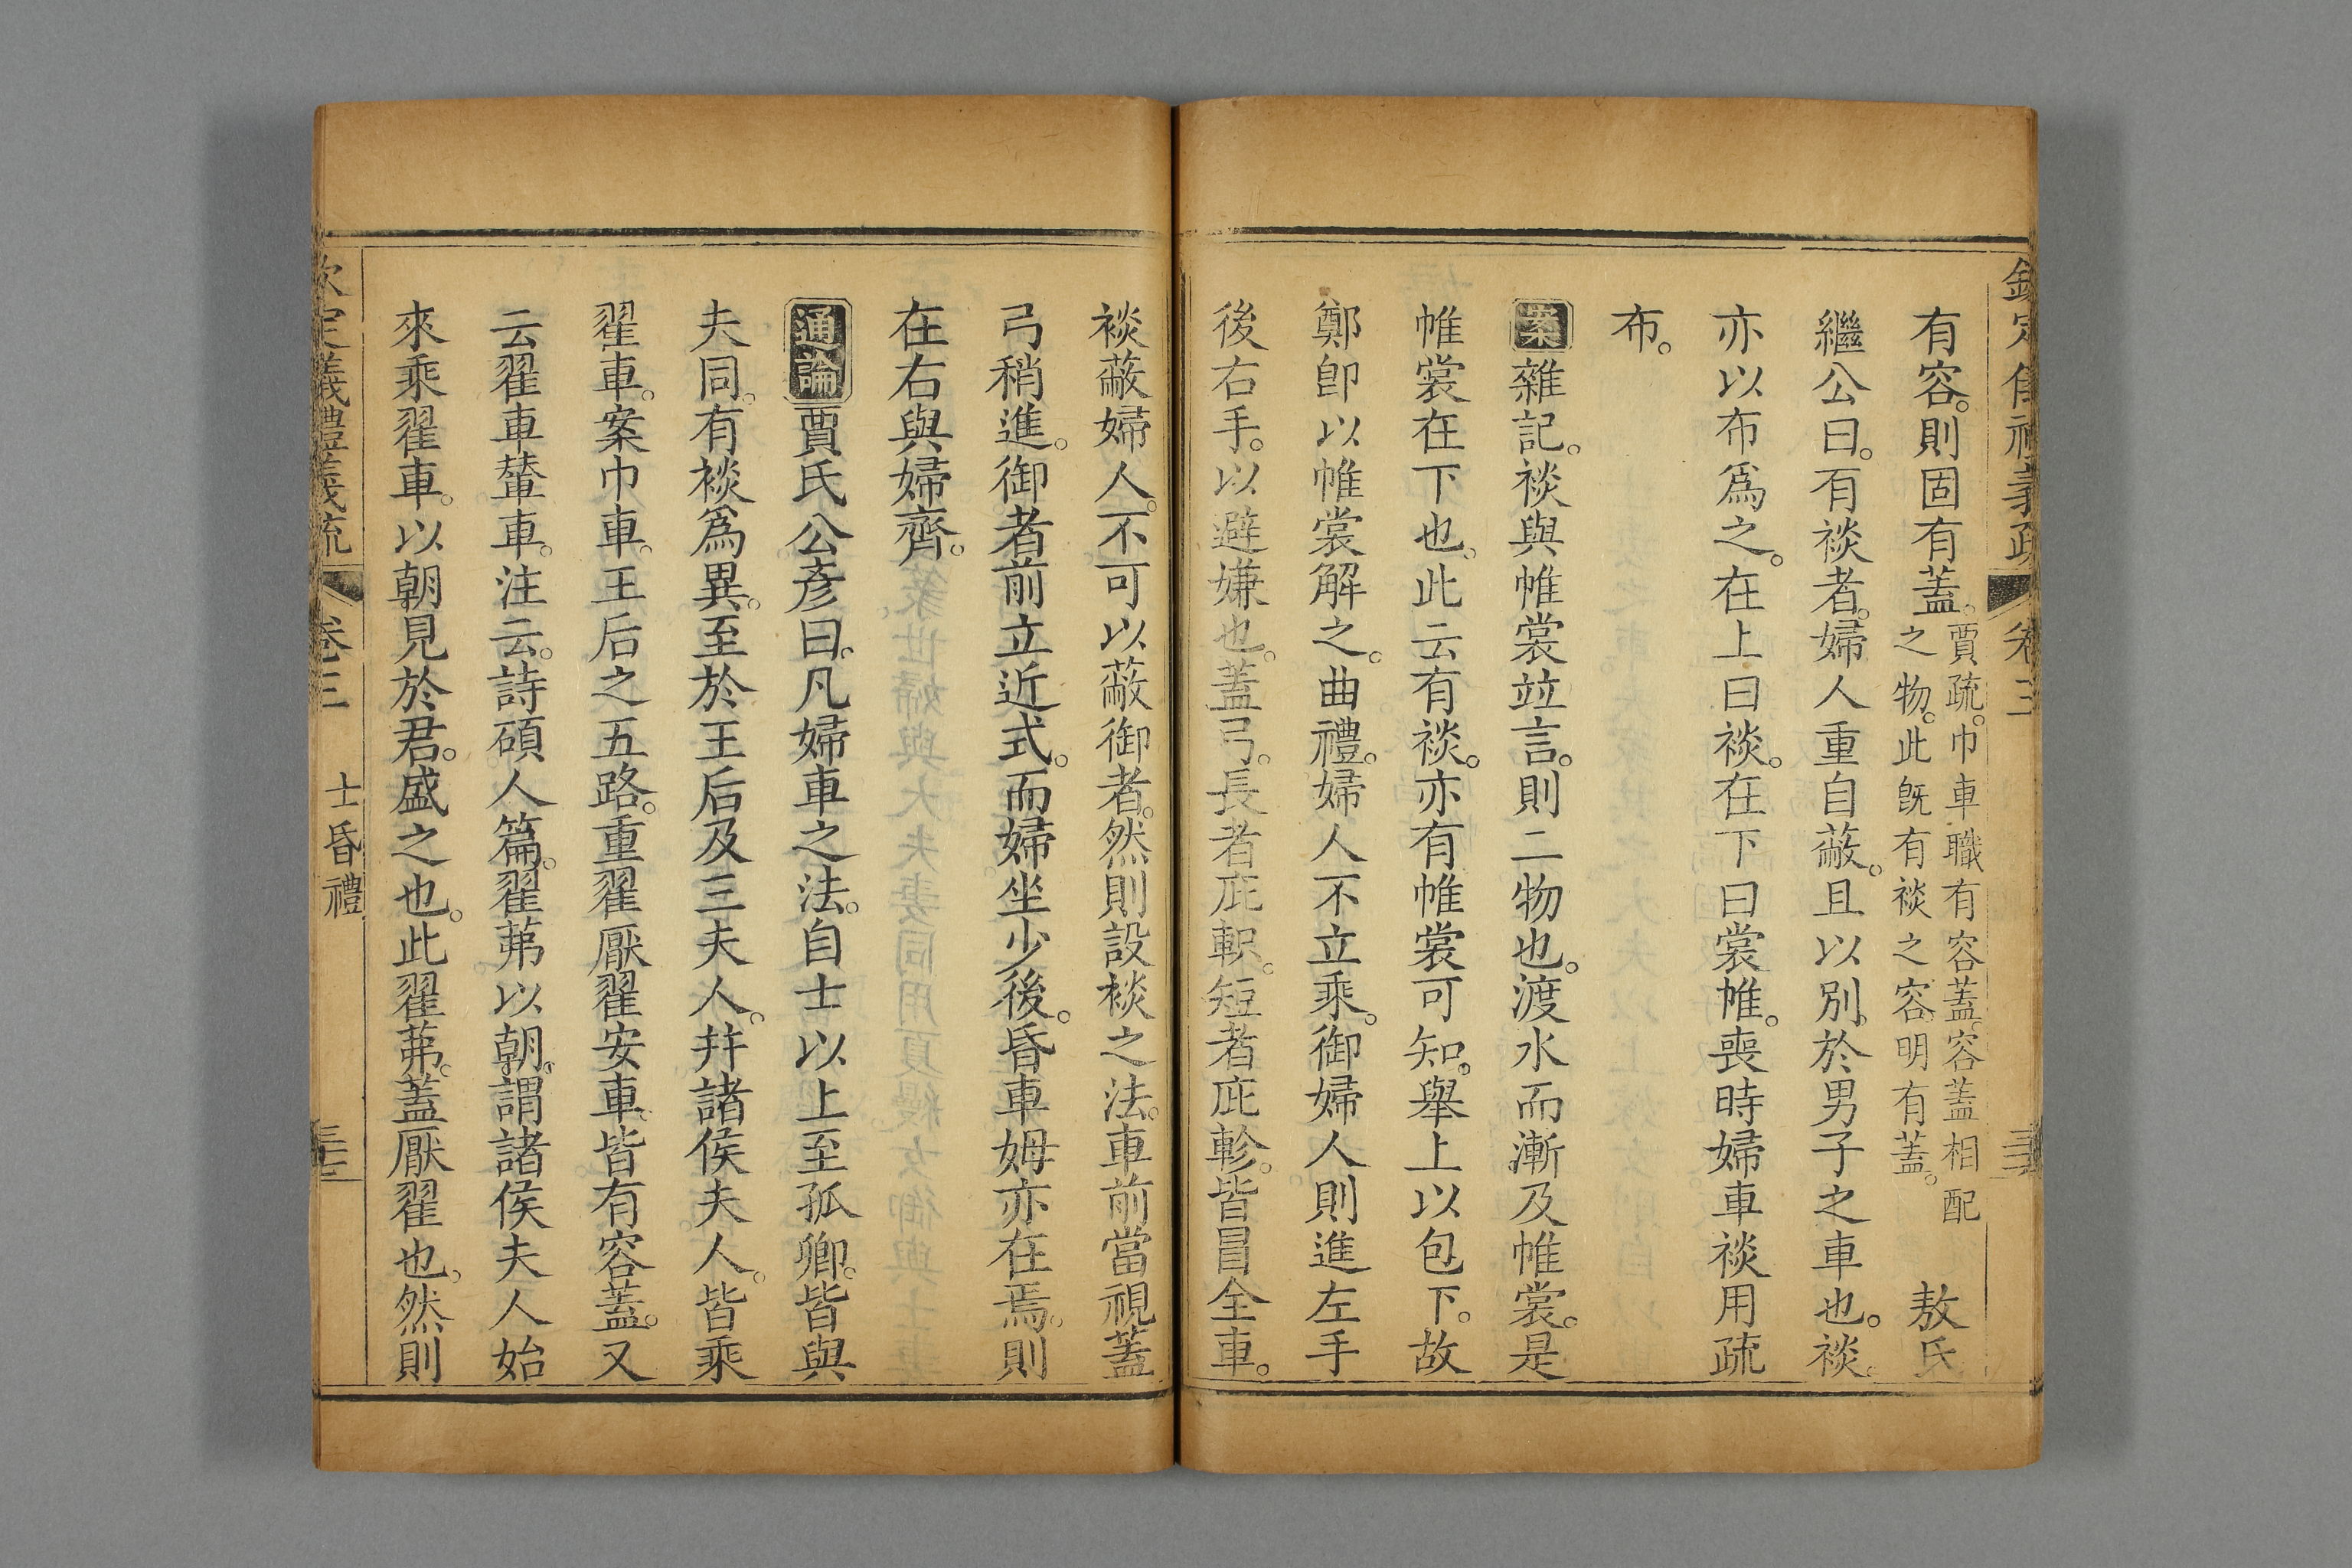 有容。則固有蓋。賈疏。巾車職有容蓋。容蓋相配之物。此既有裧之容。明有蓋。敖氏
繼公曰。有裧者。婦人重自蔽。且以別於男子之車也。裧。
亦以布爲之。在上曰裧。在下曰裳帷。喪時婦車裧用疏
布。
案雜記。裧與帷裳竝言。則二物也。渡水而漸及帷裳。是
帷裳在下也。此云有裧。亦有帷裳可知。舉上以包下。故
鄭卽以帷裳解之。曲禮。婦人不立乘。御婦人則進左手
後右手。以避嫌也。蓋弓。長者庇軹。短者庇軫。皆冒全車。
裧蔽婦人。不可以蔽御者。然則設裧之法。車前當視蓋
弓稍進。御者前立近式。而婦坐少後。昏車姆亦在焉。則
在右與婦齊。
通論賈氏公彥曰。凡婦車之法。自士以上至孤卿。皆與
夫同。有裧爲異。至於王后及三夫人。拜諸侯夫人。皆乘
翟車。案巾車。王后之五路。重翟厭翟安車。皆有容蓋。又
云翟車輦車。注云。詩碩人篇。翟茀以朝。謂諸侯夫人始
來乘翟車。以朝見於君。盛之也。此翟茀。蓋厭翟也。然則
欽定義禮義疏 卷三 士昏禮